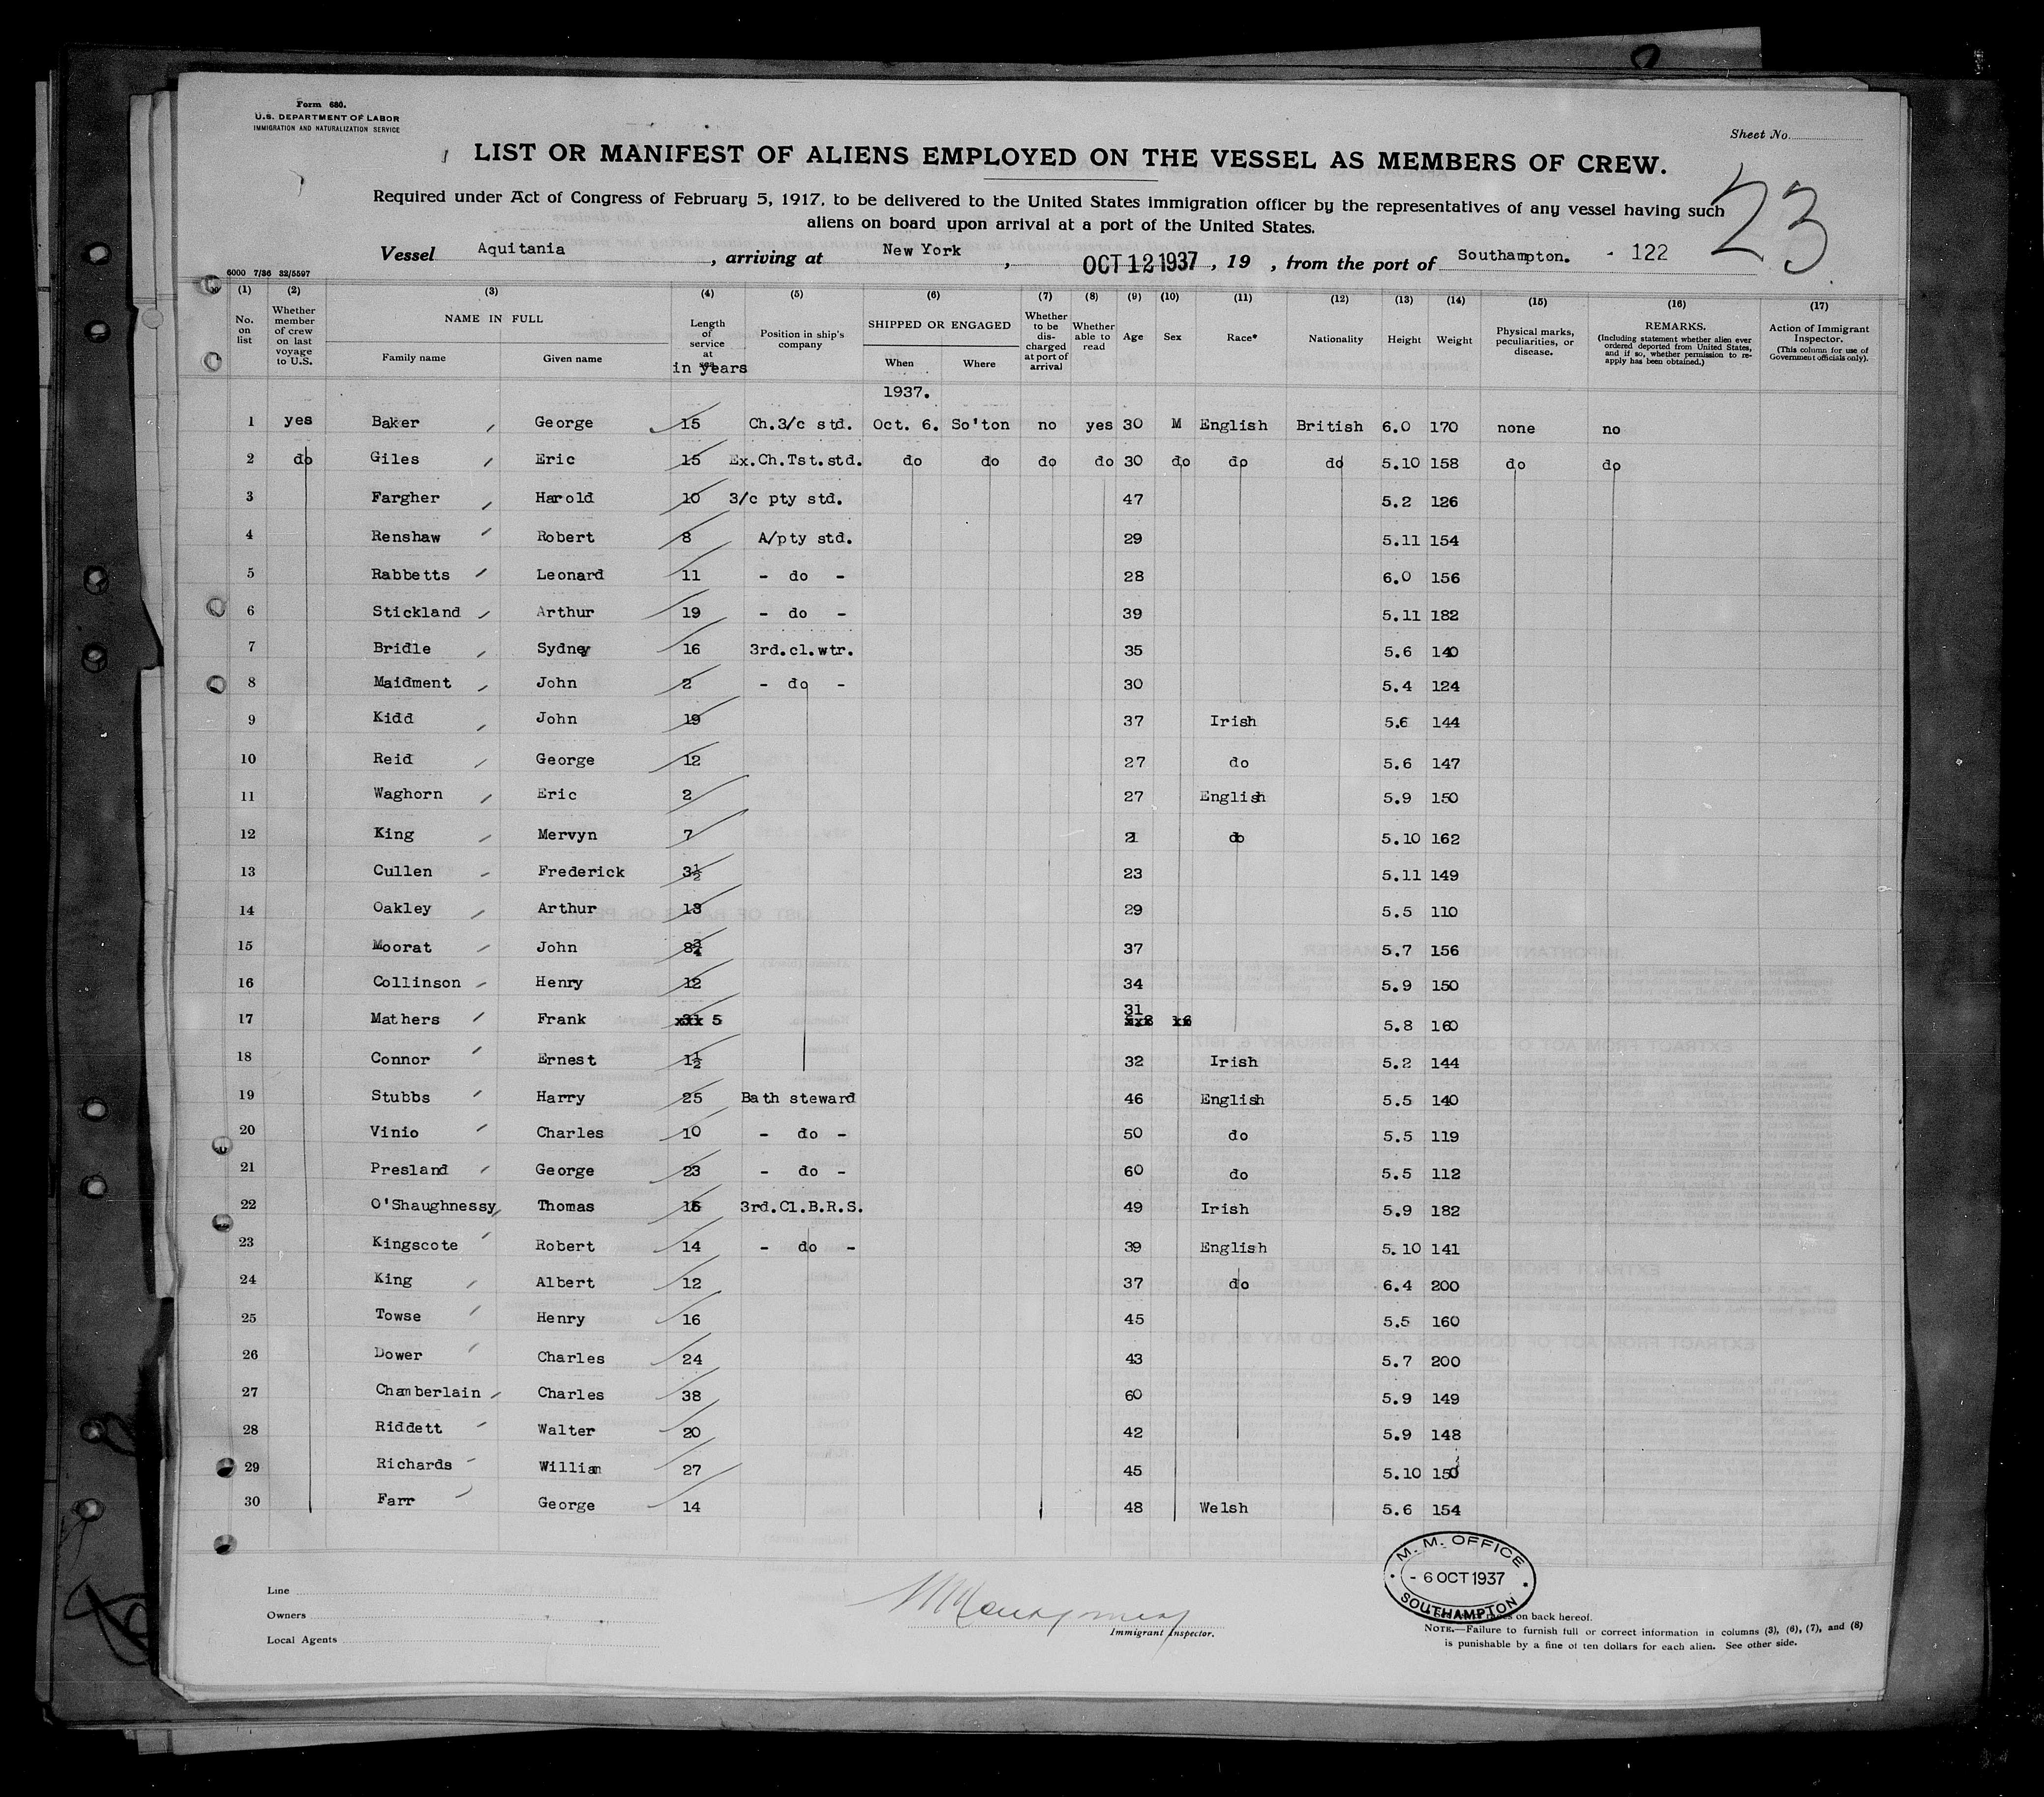 Form 680.
U.S. DEPARTMENT OF LABOR
IMMIGRATION AND NATURALIZATION SERVICE
Sheet No.
LIST OR MANIFEST OF ALIENS EMPLOYED ON THE VESSEL AS MEMBERS OF CREW.
23
Required under Act of Congress of February 5, 1917, to be delivered to the United States immigration officer by the representatives of any vessel having such
aliens on board upon arrival at a port of the United States.
Vessel Aquitania, arriving at New York, OCT 12 1937, 19 , from the port of Southampton. - 122
6000 7/36 32/5597
(1) (2) (3) (4) (5) (6) (7) (8) (9) (10) (11) (12) (13) (14) (15) (16) (17)
No. on list
Whether member of crew on last voyage to U.S.
NAME IN FULL
Family name Given name
Length of service at sea in years
Position in ship's company
SHIPPED OR ENGAGED
When Where
Whether to be discharged at port of arrival
Whether able to read
Age
Sex
Race*
Nationality
Height
Weight
Physical marks, peculiarities, or disease.
REMARKS.
(Including statement whether alien ever ordered deported from United States, and if so, whether permission to reapply has been obtained.)
Action of Immigrant Inspector.
(This column for use of Government officials only).
1937.
1 yes Baker George 15 Ch.3/c std. Oct. 6. So'ton no yes 30 M English British 6.0 170 none no
2 do Giles Eric 15 Ex.Ch.Tst.std. do do do do 30 do do do 5.10 158 do do
3 Fargher Harold 10 3/c pty std. 47 5.2 126
4 Renshaw Robert 8 A/pty std. 29 5.11 154
5 Rabbetts Leonard 11 - do - 28 6.0 156
6 Stickland Arthur 19 - do - 39 5.11 182
7 Bridle Sydney 16 3rd.cl.wtr. 35 5.6 140
8 Maidment John 2 - do - 30 5.4 124
9 Kidd John 19 37 Irish 5.6 144
10 Reid George 12 27 do 5.6 147
11 Waghorn Eric 2 27 English 5.9 150
12 King Mervyn 7 21 do 5.10 162
13 Cullen Frederick 3½ 23 5.11 149
14 Oakley Arthur 13 29 5.5 110
15 Moorat John 8¾ 37 5.7 156
16 Collinson Henry 12 34 5.9 150
17 Mathers Frank 5 31 5.8 160
18 Connor Ernest 1½ 32 Irish 5.2 144
19 Stubbs Harry 25 Bath steward 46 English 5.5 140
20 Vinio Charles 10 - do - 50 do 5.5 119
21 Presland George 23 - do - 60 do 5.5 112
22 O'Shaughnessy Thomas 3rd.Cl.B.R.S. 49 Irish 5.9 182
23 Kingscote Robert 14 - do - 39 English 5.10 141
24 King Albert 12 37 do 6.4 200
25 Towse Henry 16 45 5.5 160
26 Dower Charles 24 43 5.7 200
27 Chamberlain Charles 38 60 5.9 149
28 Riddett Walter 20 42 5.9 148
29 Richards William 27 45 5.10 150
30 Farr George 14 48 Welsh 5.6 154
M. M. OFFICE
- 6 OCT 1937
SOUTHAMPTON
Line
Owners
Local Agents
Immigrant Inspector.
on back hereof.
NOTE.—Failure to furnish full or correct information in columns (3), (6), (7), and (8)
is punishable by a fine of ten dollars for each alien. See other side.